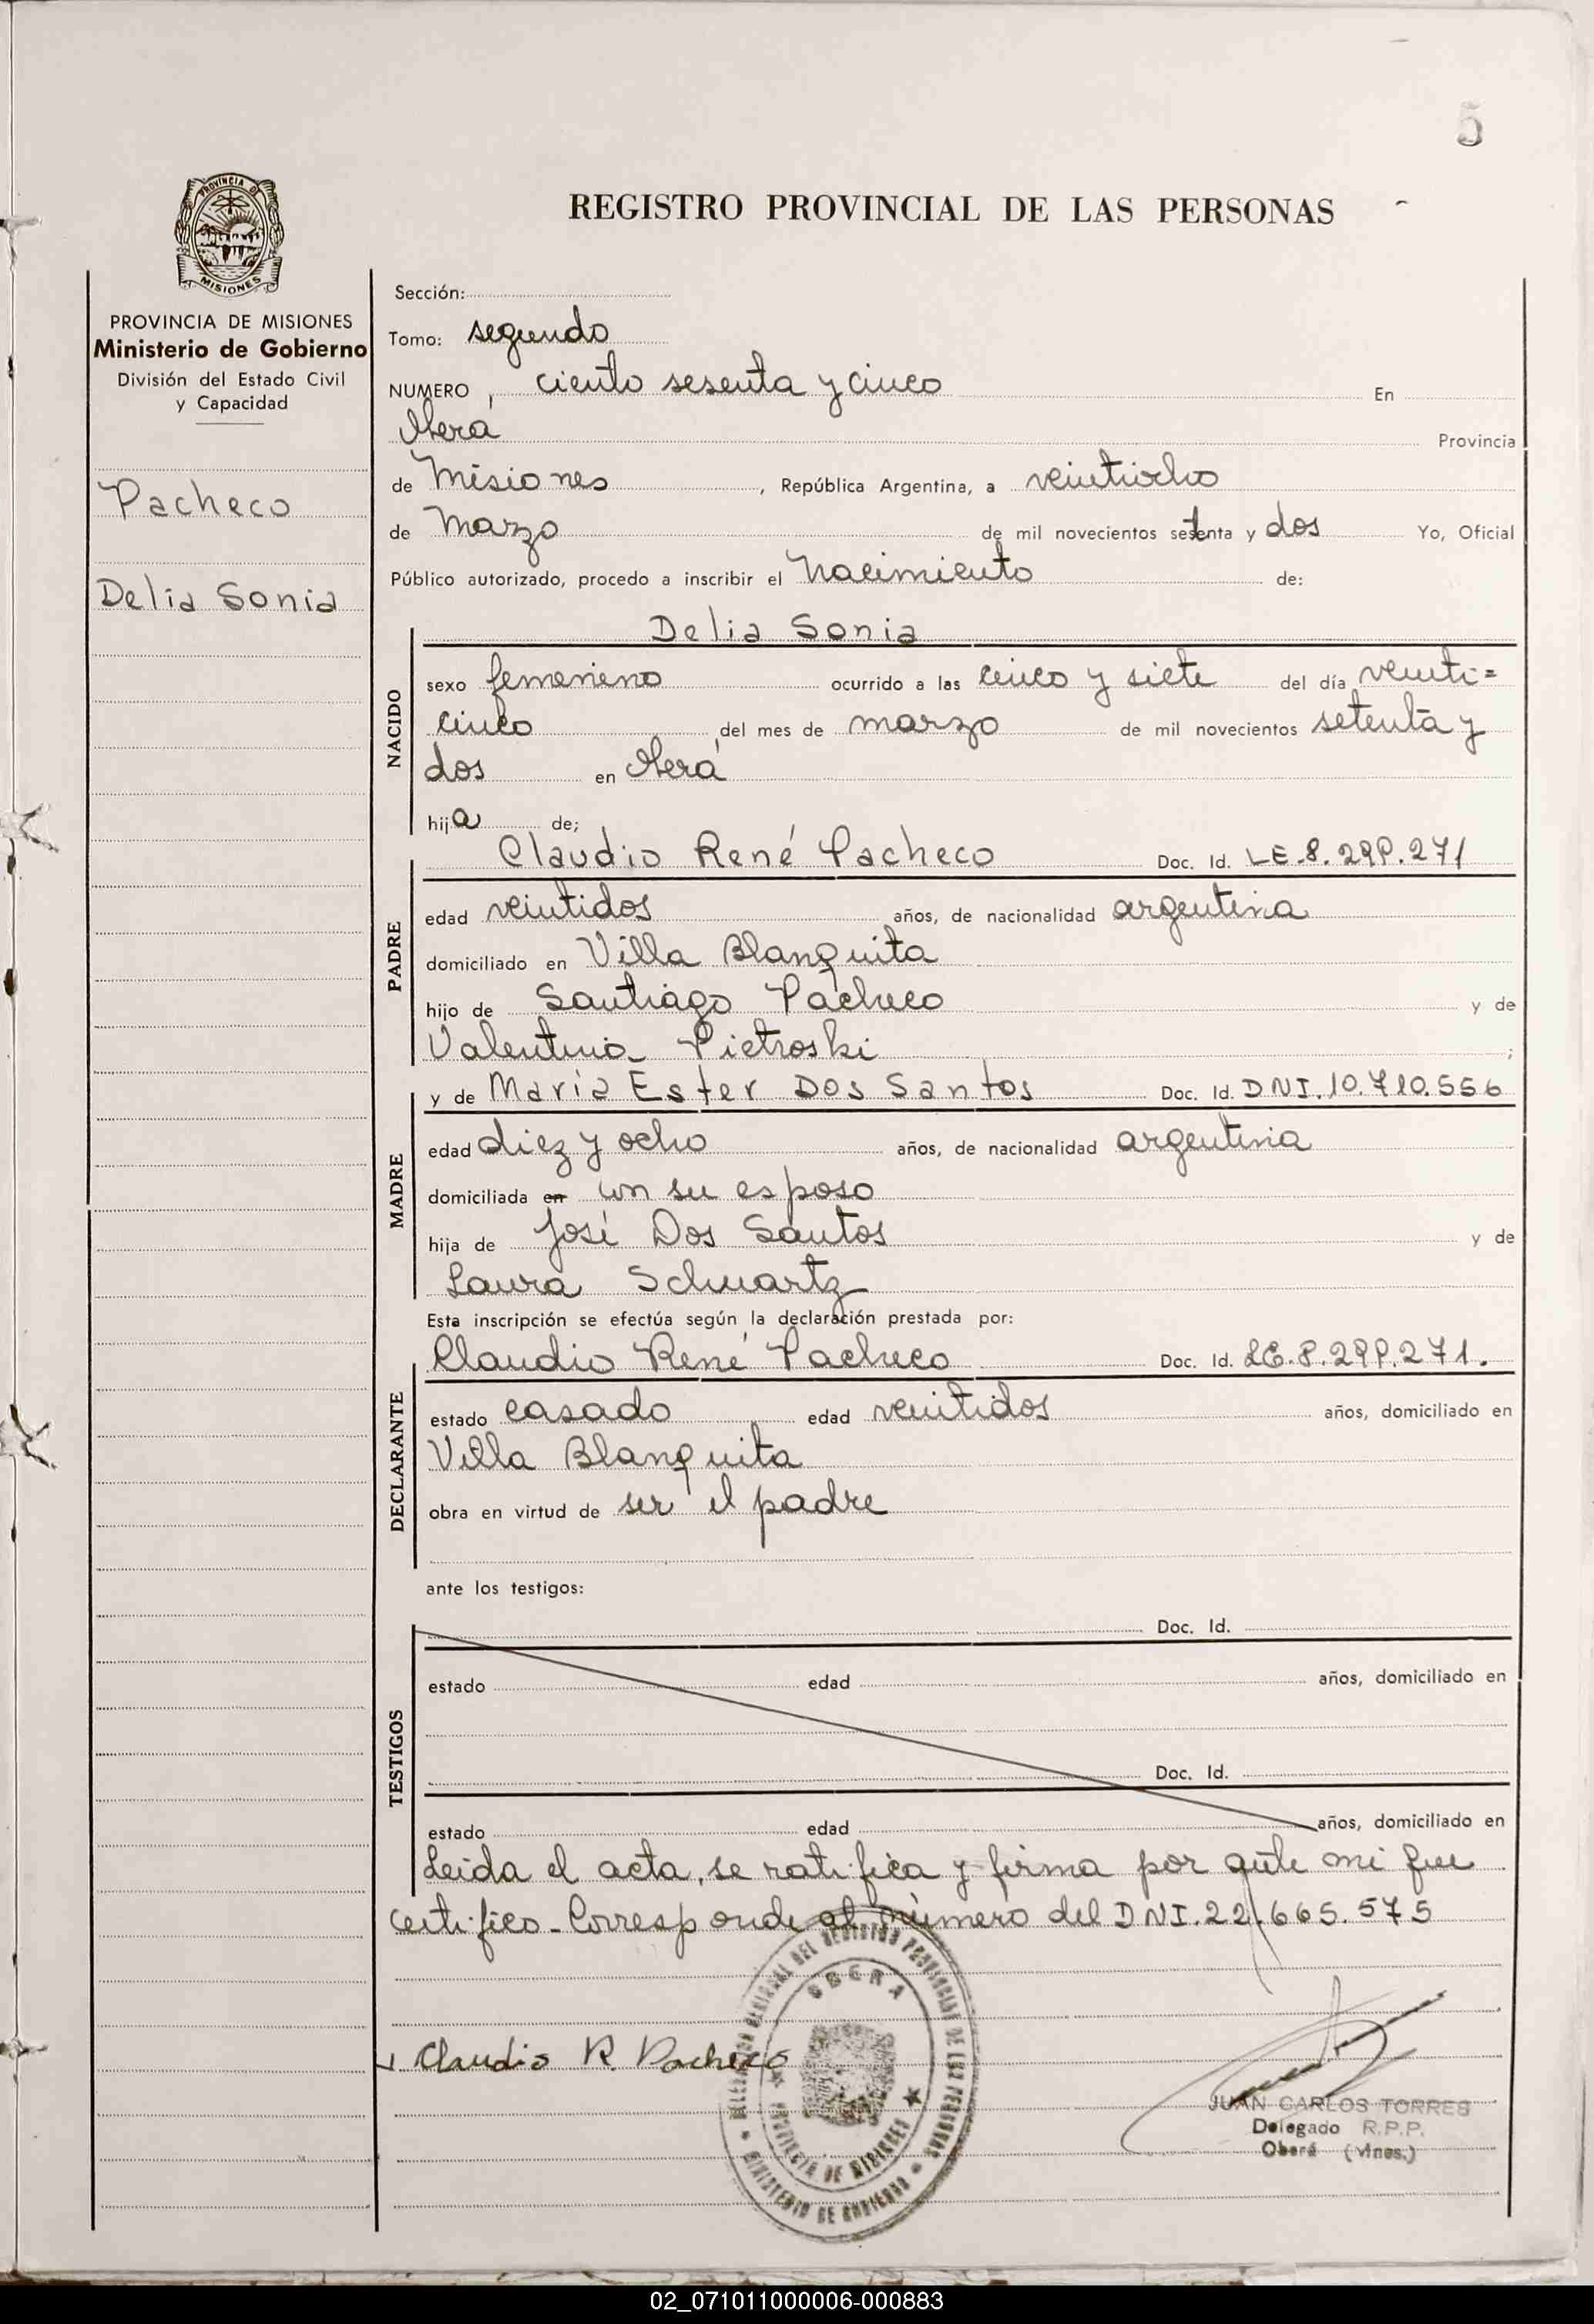 5
REGISTRO PROVINCIAL DE LAS PERSONAS
PROVINCIA DE
MISIONES
PROVINCIA DE MISIONES
Ministerio de Gobierno
División del Estado Civil
y Capacidad
Pacheco
Delia Sonia
Sección:
Tomo: segundo
NUMERO ciento sesenta y cinco En
Oberá Provincia
de Misiones, República Argentina, a veintiocho
de Marzo de mil novecientos setenta y dos Yo, Oficial
Público autorizado, procedo a inscribir el Nacimiento de:
NACIDO
Delia Sonia
sexo femenino ocurrido a las cinco y siete del día veinti=
cinco del mes de marzo de mil novecientos setenta y
dos en Oberá
hija de;
PADRE
Claudio René Pacheco Doc. Id. LE.8.299.271
edad veintidos años, de nacionalidad argentina
domiciliado en Villa Blanquita
hijo de Santiago Pacheco y de
Valentina Pietroski ;
MADRE
y de María Ester Dos Santos Doc. Id. DNI.10.710.556
edad diez y ocho años, de nacionalidad argentina
domiciliada en con su esposo
hija de José Dos Santos y de
Laura Schwartz
Esta inscripción se efectúa según la declaración prestada por:
DECLARANTE
Claudio René Pacheco Doc. Id. LE.8.299.271.
estado casado edad veintidos años, domiciliado en
Villa Blanquita
obra en virtud de ser el padre
ante los testigos:
TESTIGOS
Doc. Id.
estado edad años, domiciliado en
Doc. Id.
estado edad años, domiciliado en
Leida el acta, se ratifica y firma por ante mi que
certifico - Corresponde al número del DNI.22.665.575
DELEGACION REGIONAL DEL REGISTRO PROVINCIAL DE LAS PERSONAS
OBERA
PROVINCIA DE MISIONES
MINISTERIO DE GOBIERNO
Claudio R. Pacheco
JUAN CARLOS TORRES
Delegado R.P.P.
Oberá (Mnes.)
02_071011000006-000883